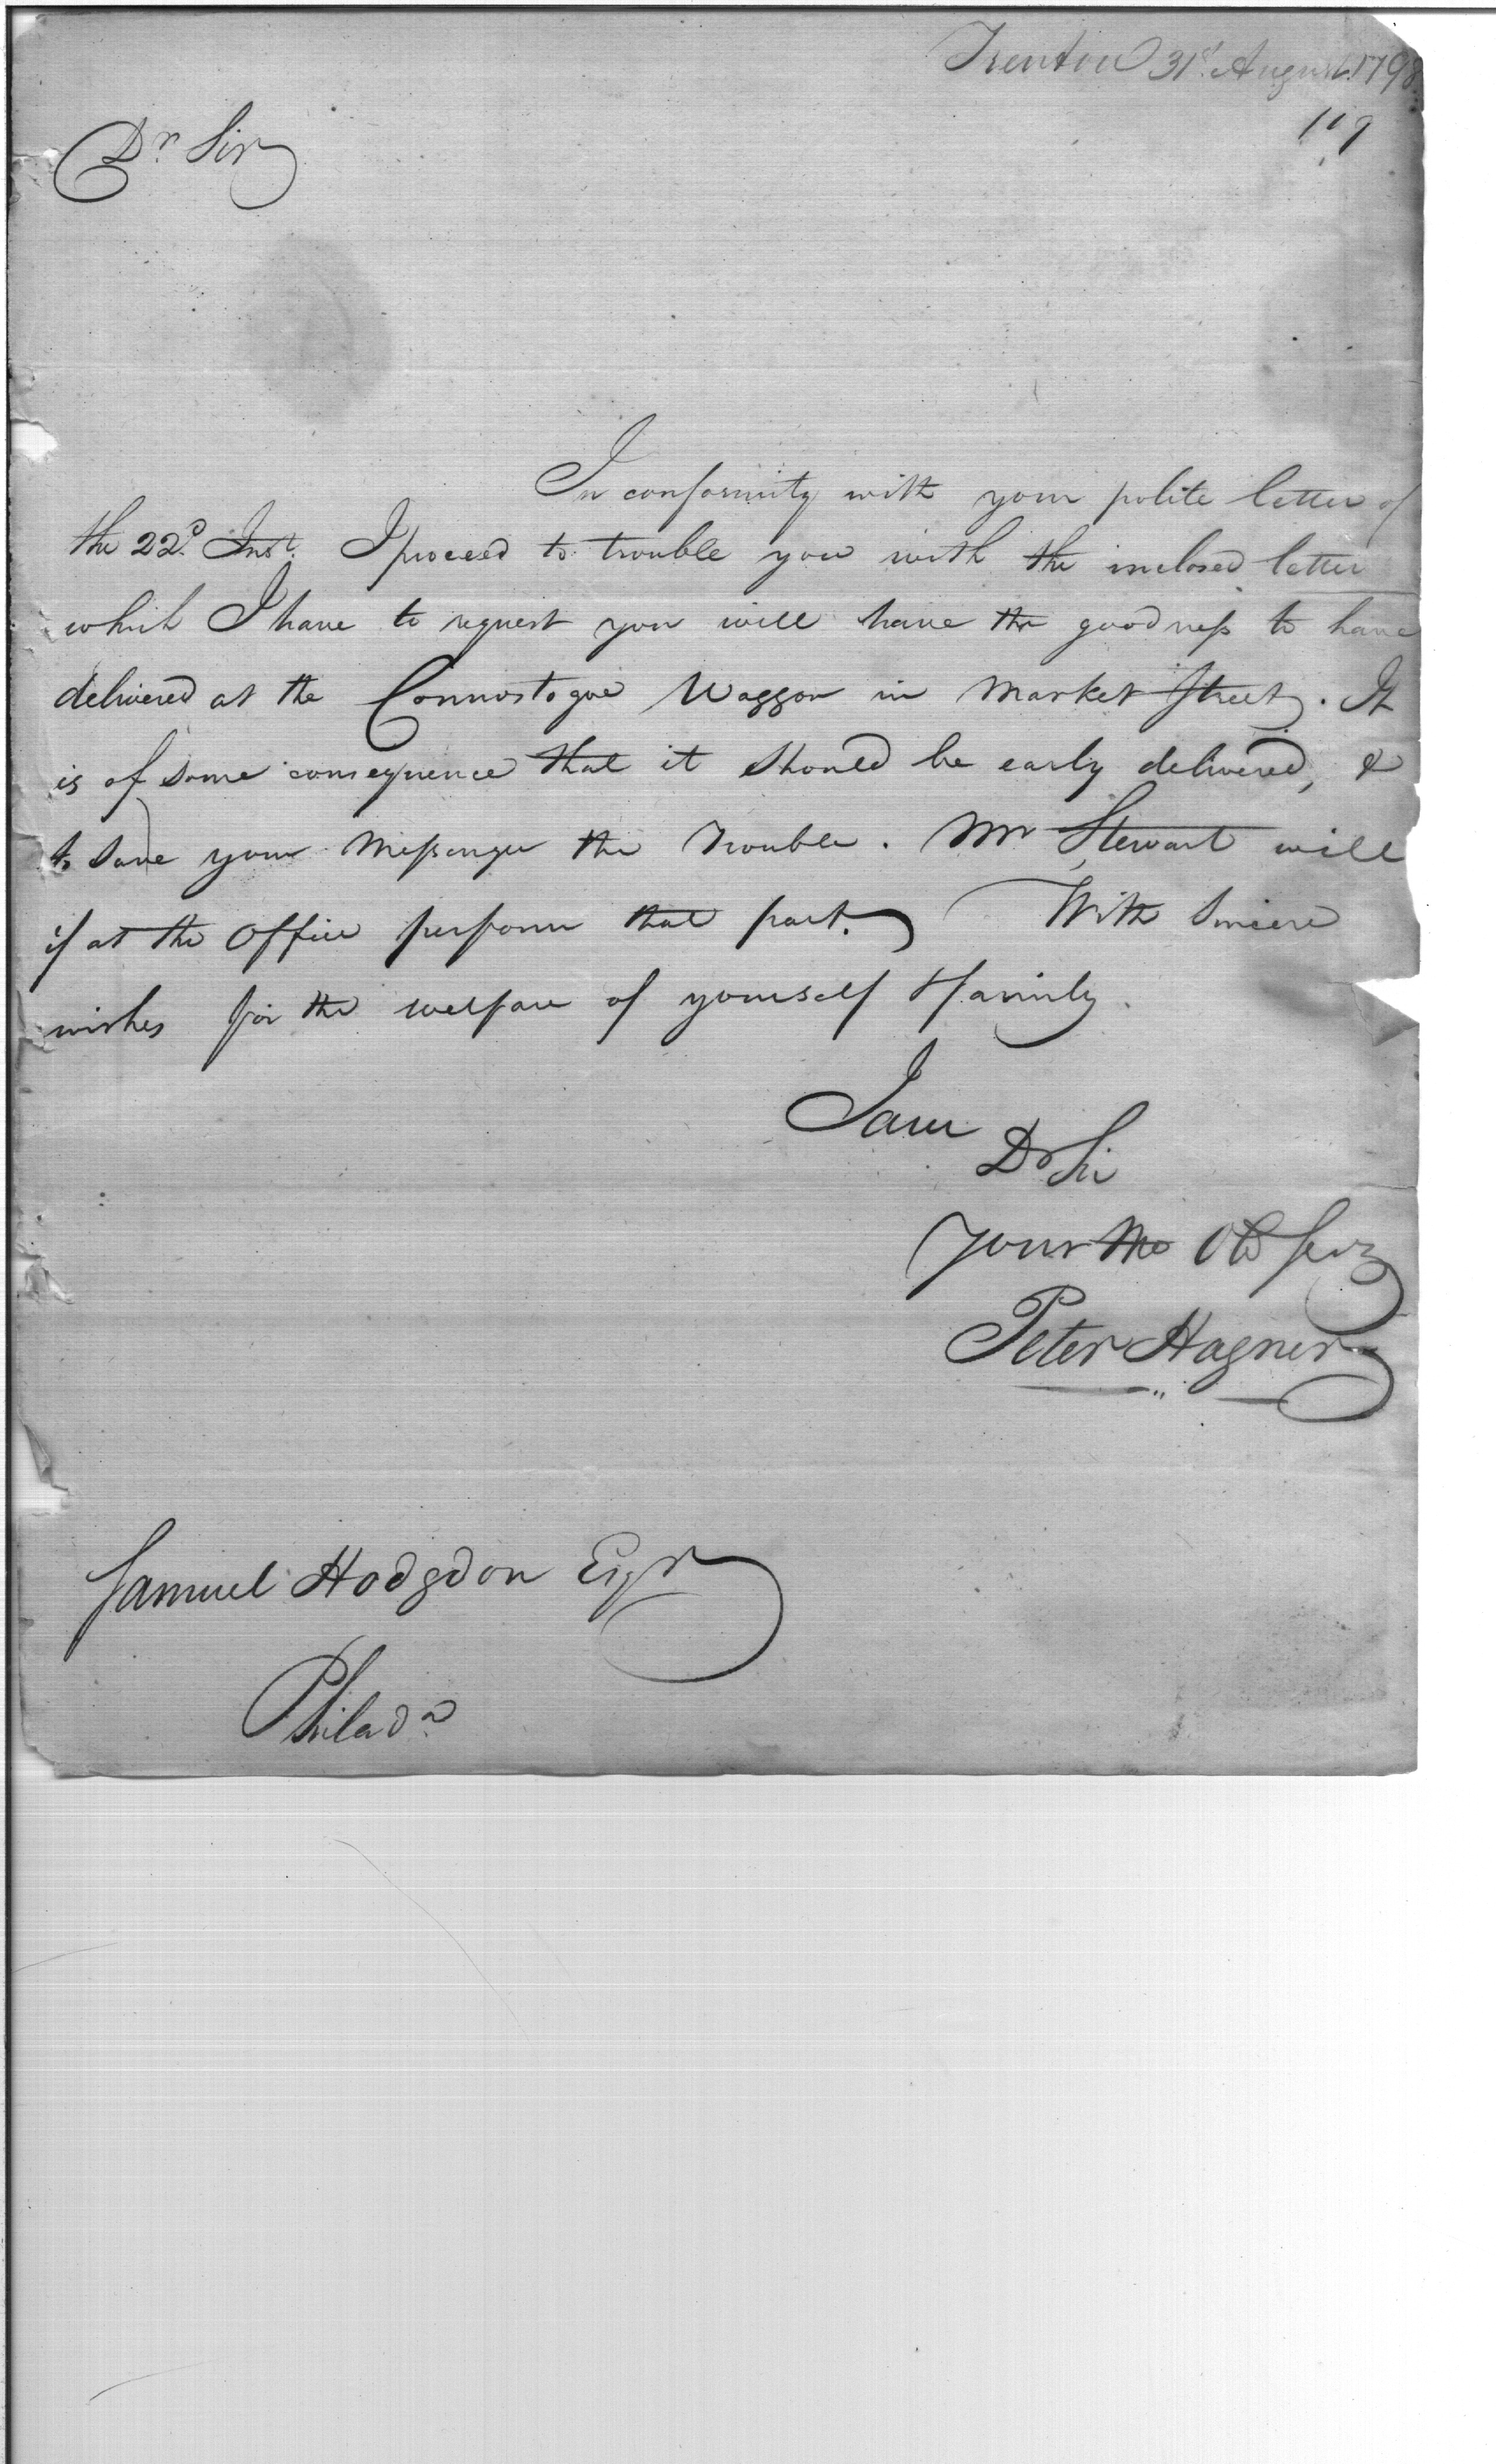 Trenton 31st August 1798.
119
Dr. Sir
In conformity with your polite letter of
the 22d. Inst. I proceed to trouble you with the inclosed letter
which I have to request you will have the goodness to have
delivered at the Connostogoe Waggon in Market Street. It
is of some consequence that it should be early delivered, &
to save your Messenger the trouble. Mr Stewart will
if at the Office perform that part. With sincere
wishes for the welfare of yourself & family.
I am
Dr Sir
Your Mo Ob Serv
Peter Hagner
Samuel Hodgdon Esqr
Philada.